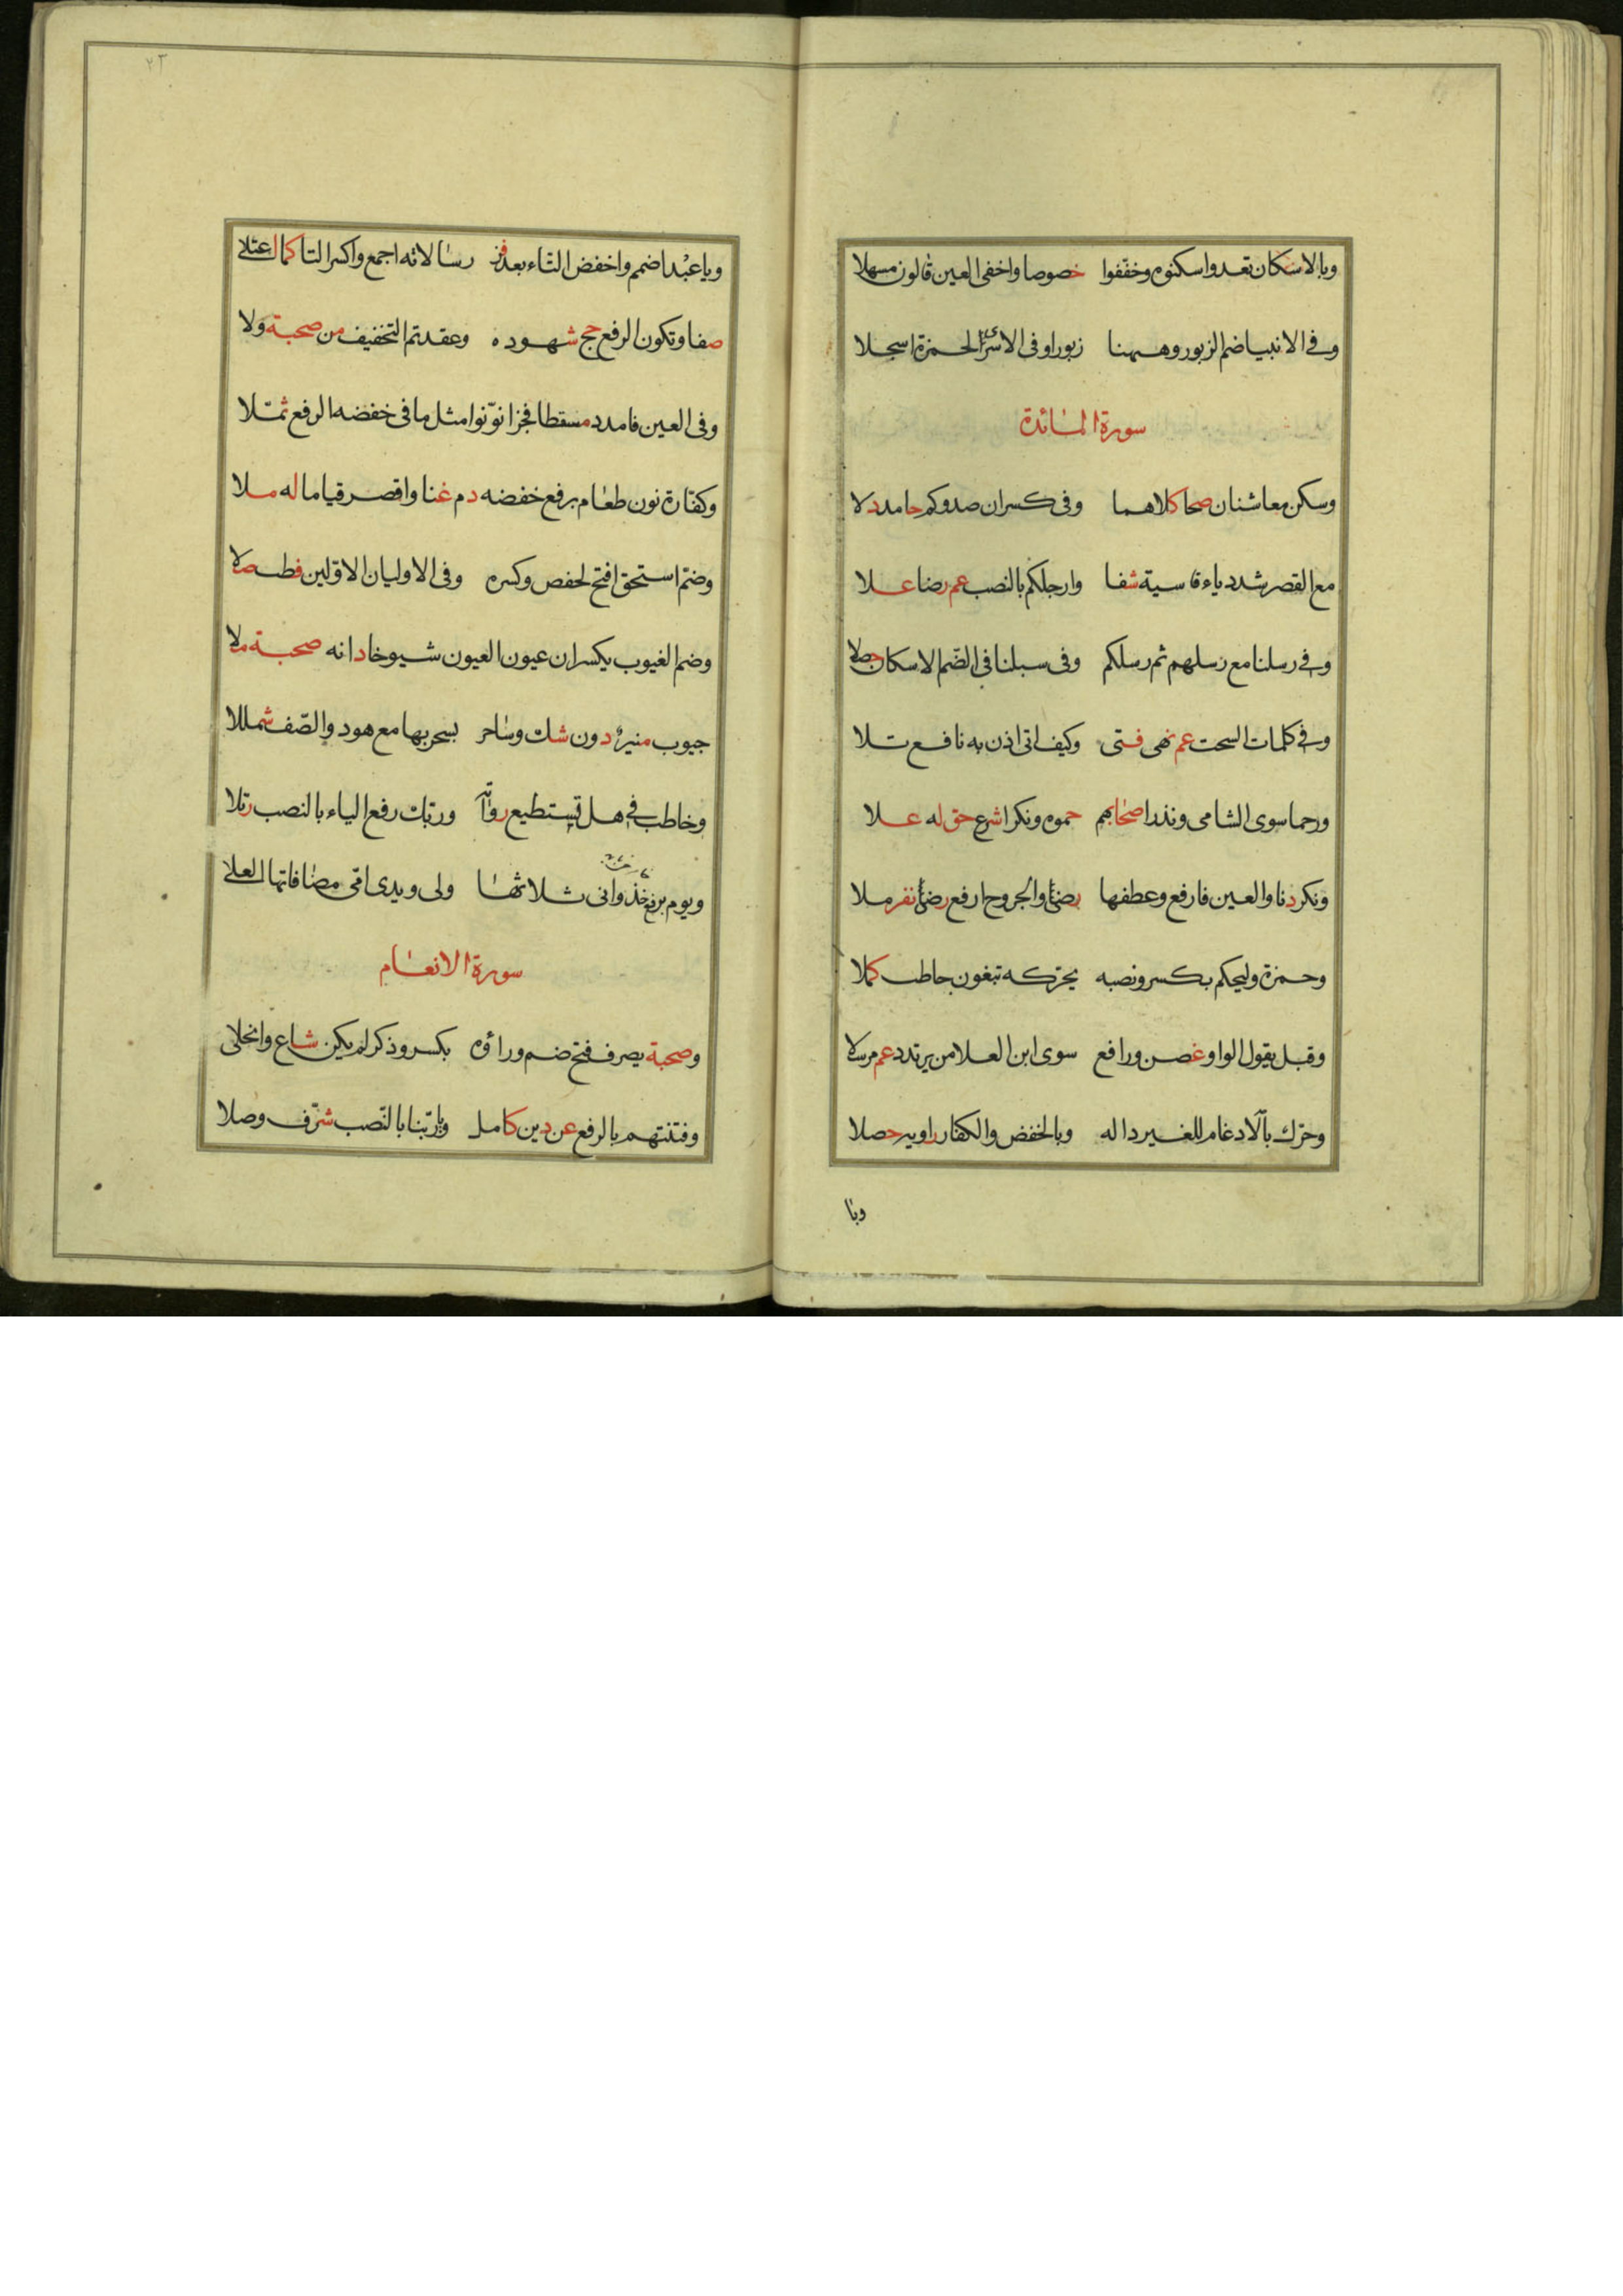 وبالاسكان تعدوا سكنوه وخففوا خصوصا واخفى العين قالون مسهلا
وفى الانبيا ضم الزبور وههنا زبورا وفى الاسرا لحمزة اسجلا
سورة المائدة
وسكن معا شنان صحا كلاهما وفى كسر ان صدوكم حامد دلا
مع القصر شدد ياء قاسية شفا وارجلكم بالنصب عم رضا علا
وفى رسلنا مع رسلهم ثم رسلكم وفى سبلنا فى الضم الاسكان حصلا
وفى كلمات السحت عم نهى فتى وكيف اتى اذن به نافع تلا
ورحما سوى الشامى ونذرا صحابهم حموه ونكرا شرع حق له علا
ونكر دنا والعين فارفع وعطفها رضى والجروح ارفع رضى نفر ملا
وحمزة وليحكم بكسر ونصبه يحركه تبغون خاطب كملا
وقبل يقول الواو غصن ورافع سوى ابن العلا من يرتدد عم مرسلا
وحرك بالادغام للغير داله وبالخفض والكفار راويه حصلا
وبا
٢٣
وبا عبد اضمم واخفض التاء بعد فز رسالاته اجمع واكسر التا كما اعتلى
صفا وتكون الرفع حج شهوده وعقدتم التخفيف من صحبة ولا
وفى العين فامدد مقسطا فجزا نونوا مثل ما فى خفضه الرفع ثملا
وكفارة نون طعام برفع خفضه دم غنا واقصر قياما له ملا
وضم استحق افتح لحفص وكسره وفى الاوليان الاولين فطب صلا
وضم الغيوب يكسران عيونا العيون شيوخا دانه صحبة ملا
جيوب منير دون شك وساحر بسحر بها مع هود والصف شمللا
وخاطب فى هل تستطيع رواته وربك رفع الياء بالنصب رتلا
ويوم برفع خذ وانى ثلاثها ولى ويدى امى مضافاتها العلى
سورة الانعام
وصحبة يصرف فتح ضم وراؤه بكسر وذكر لم يكن شاع وانجلى
وفتنتهم بالرفع عن دين كامل وباربنا بالنصب شرف وصلا